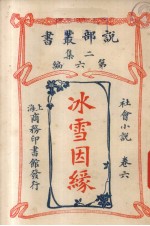 說部叢書
二集
第六編
社會小說 卷六
冰雪因緣
上海商務印書館發行